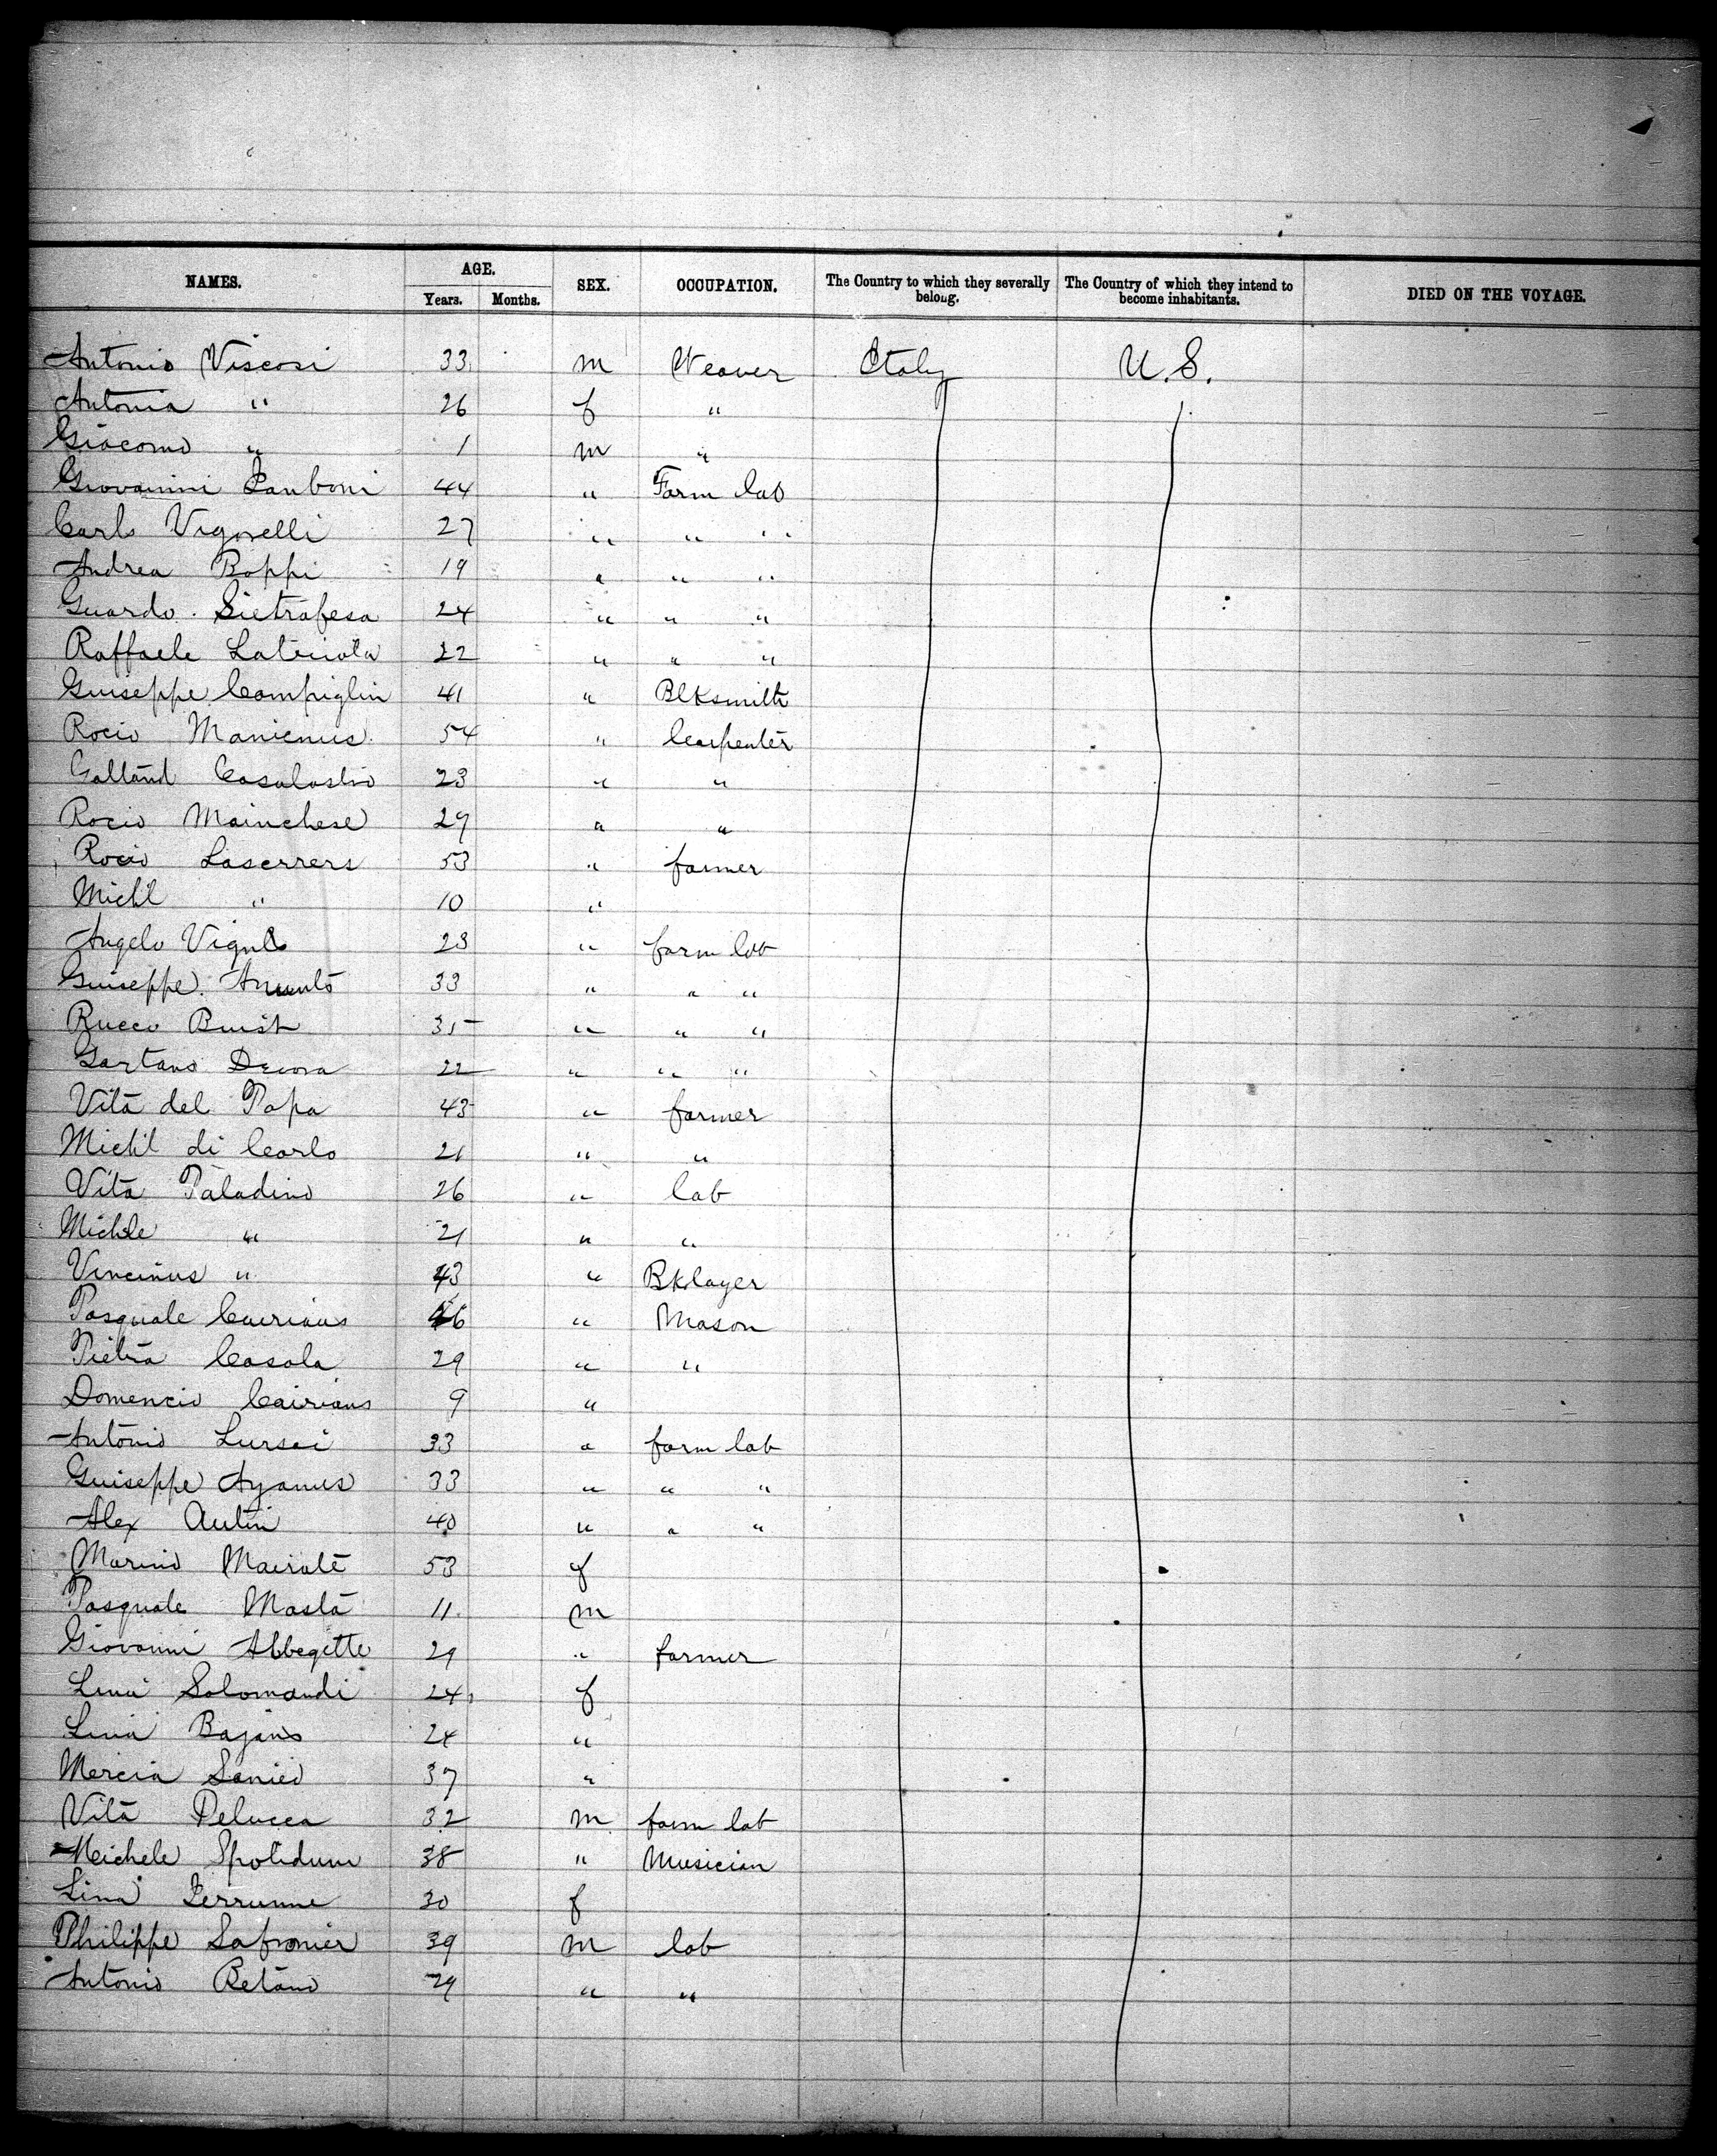 NAMES. AGE. SEX. OCCUPATION. The Country to which they severally belong. The Country of which they intend to become inhabitants. DIED ON THE VOYAGE.
Years. Months.
Antonio Viscosi 33 m Weaver Italy U.S.
Antonia " 26 f "
Giacomo " 1 m "
Giovanni Zanboni 44 " Farm lab
Carlo Vigorelli 27 " " "
Andrea Boppi 19 " " "
Guardo Pietrafesa 24 " " "
Raffaele 22 " " "
Guiseppe Compiglin 41 " Blksmith
Rocio Manienus 54 " Carpenter
Galland Casalastro 23 " "
Rocio Mainchese 29 " "
Rocio Laserrers 53 " farmer
Michl " 10 "
Angelo 23 " farm lab
Guiseppe 33 " " "
Rucco 35 " " "
Gartano 22 " " "
Vita del Papa 43 " farmer
Michl di Carlo 21 " "
Vita Paladino 26 " lab
Michle " 21 " "
Vincinus " 43 " Bklayer
Pasquale 46 " Mason
Pietra Casala 29 " "
Domencio Cairians 9 "
Antonio Lursei 33 " farm lab
Guiseppe Ayanus 33 " " "
Alex Autin 40 " " "
Marino Mairate 53 f
Pasquale Masta 11 m
Giovanni Abbegette 29 " farmer
Lina Solomandi 24 f
Lina Bajans 24 "
Mercia Sanied 37 "
Vita Pelucca 32 m farm lab
Meichele Spolidum 38 " Musician
Lina Zerrunne 30 f
Philippe Safronier 39 m lab
Antonio Retano 29 " "